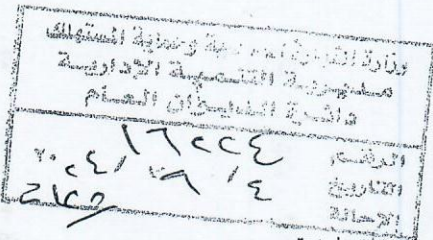 وزارة التجارة الداخلية وحماية المستهلك
مديرية التنمية الإدارية
دائرة الديوان العام
الرقم ١٦٢٢٤
التاريخ ٤/ ٩ /٢٠٢٤
الإحالة